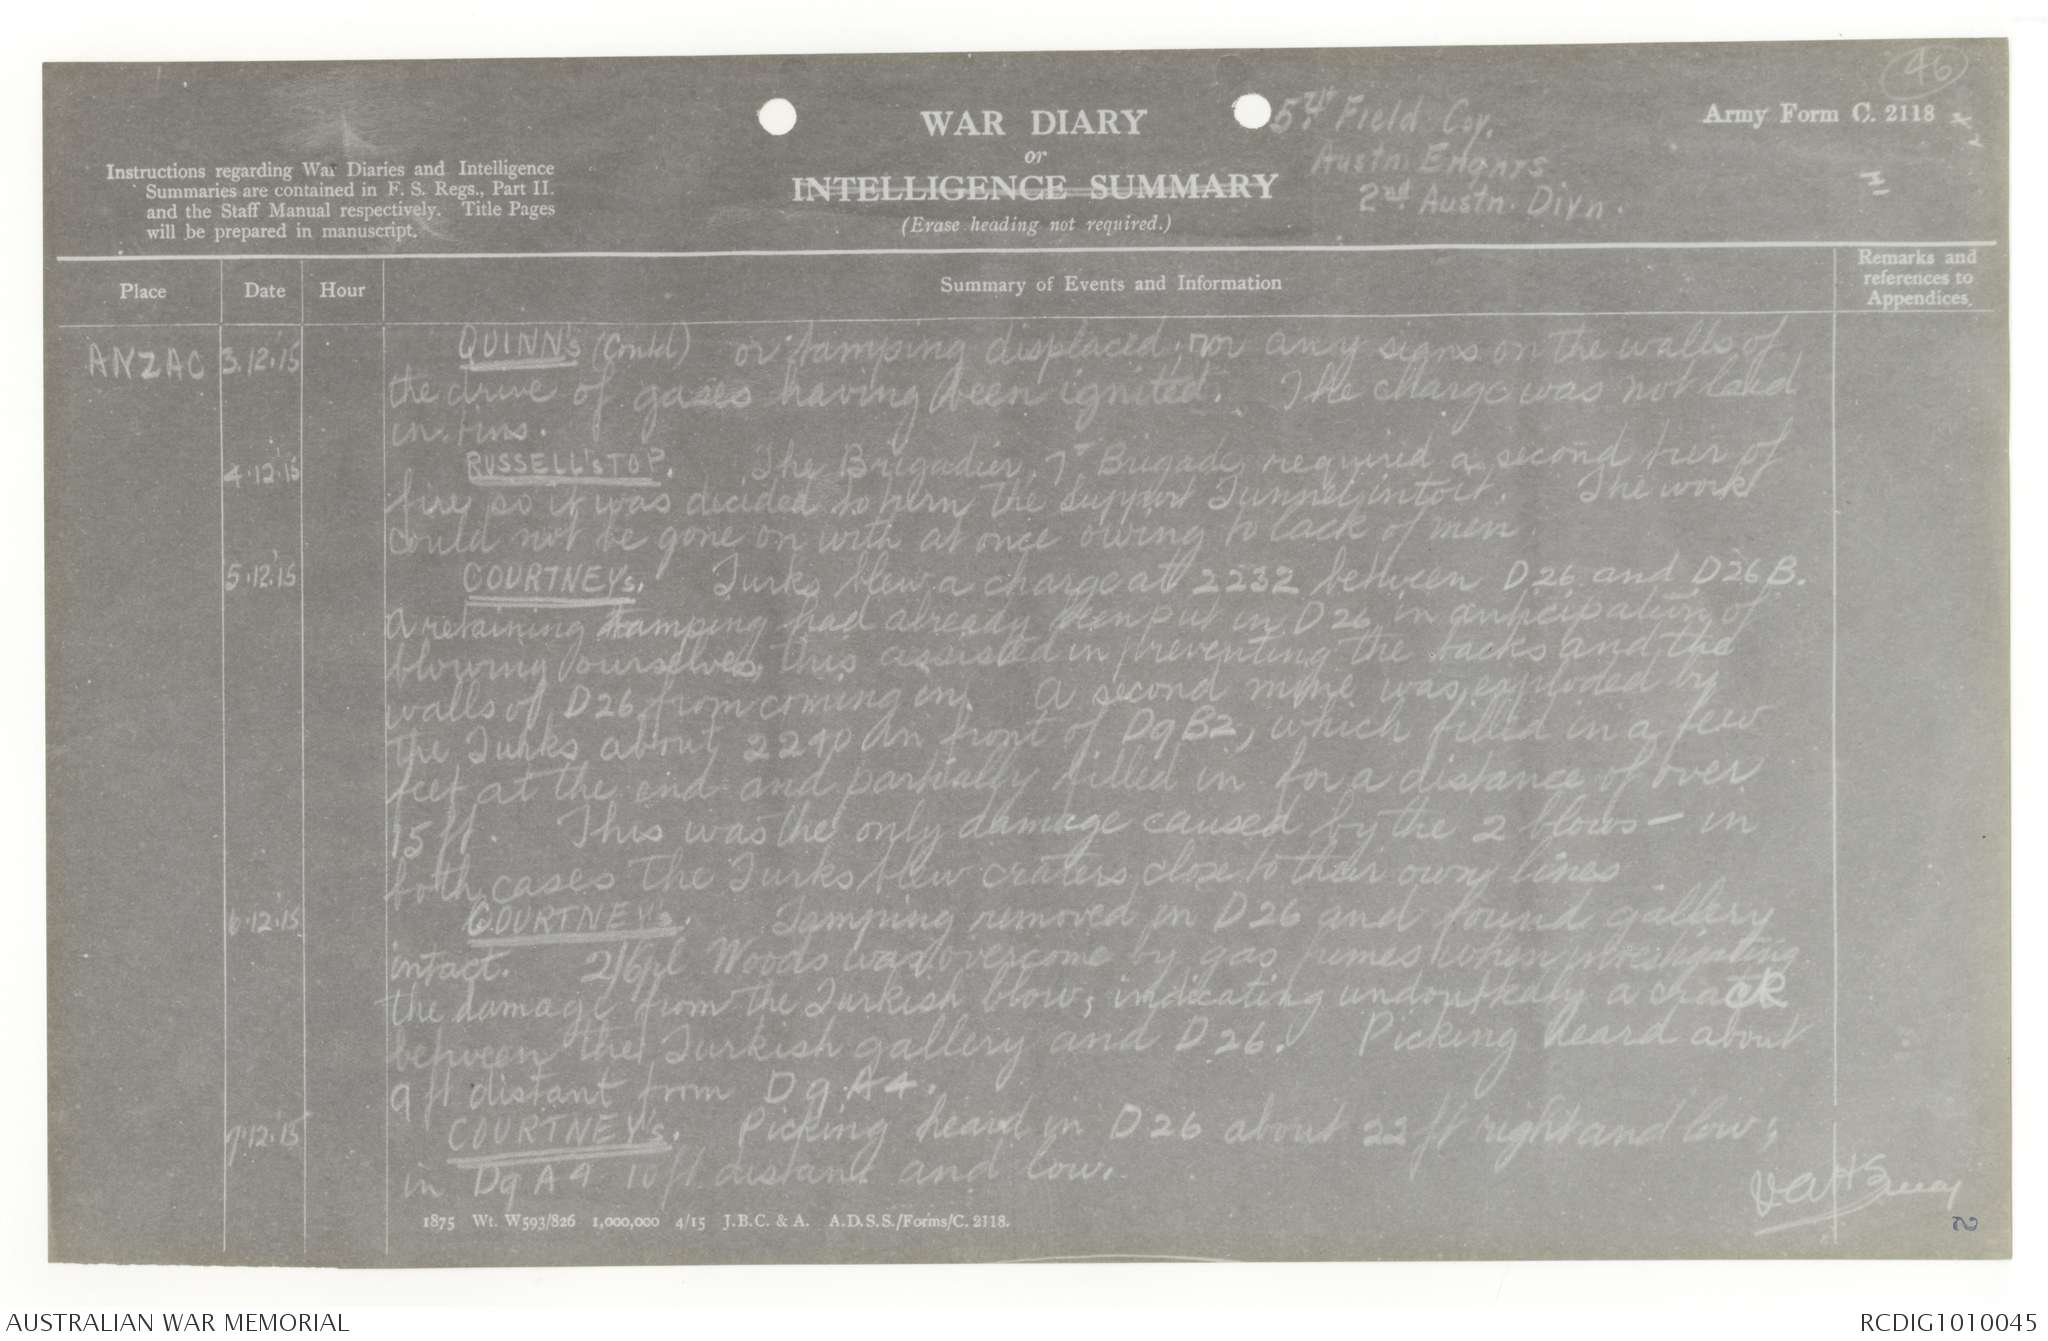 46
WAR DIARY
or
INTELLIGENCE SUMMARY
(Erase heading not required.)
5th Field Coy.
Austn. Engnrs
2nd Austn. Divn.
Army Form C. 2118
Instructions regarding War Diaries and Intelligence
Summaries are contained in F. S. Regs., Part II.
and the Staff Manual respectively. Title Pages
will be prepared in manuscript.
Place
Date
Hour
Summary of Events and Information
Remarks and
references to
Appendices.
ANZAC 3.12.15 QUINN's (Contd) or tamping displaced, nor any signs on the walls of
the drive of gases having been ignited. The charge was not laid
in tins.
4.12.15 RUSSELL's TOP. The Brigadier, 7th Brigade required a second tier of
fire so it was decided to turn the support Tunnel into it. The work
could not be gone on with at once owing to lack of men
5.12.15 COURTNEYs. Turks blew a charge at 2232 between D26 and D26B.
A retaining tamping had already been put in D26 in anticipation of
blowing ourselves, this assisted in preventing the backs and the
walls of D26 from coming in. A second mine was exploded by
the Turks about 2240 in front of DgB2, which filled in a few
feet at the end and partially filled in for a distance of over
15 ft. This was the only damage caused by the 2 blows - in
both cases the Turks blew craters close to their own lines
6.12.15 COURTNEY's. Tamping removed in D26 and found gallery
intact. 2/Cpl Woods was overcome by gas fumes when investigating
the damage from the Turkish blow, indicating undoubtedly a crack
between the Turkish gallery and D26. Picking heard about
9 ft distant from DgA4.
7.12.15 COURTNEY's. Picking heard in D26 about 22 ft right and low;
in DgA4 10 ft. distant and low.
1875 Wt. W593/826 1,000,000 4/15 J.B.C. & A. A.D.S.S./Forms/C. 2118.
2
AUSTRALIAN WAR MEMORIAL
RCDIG1010045